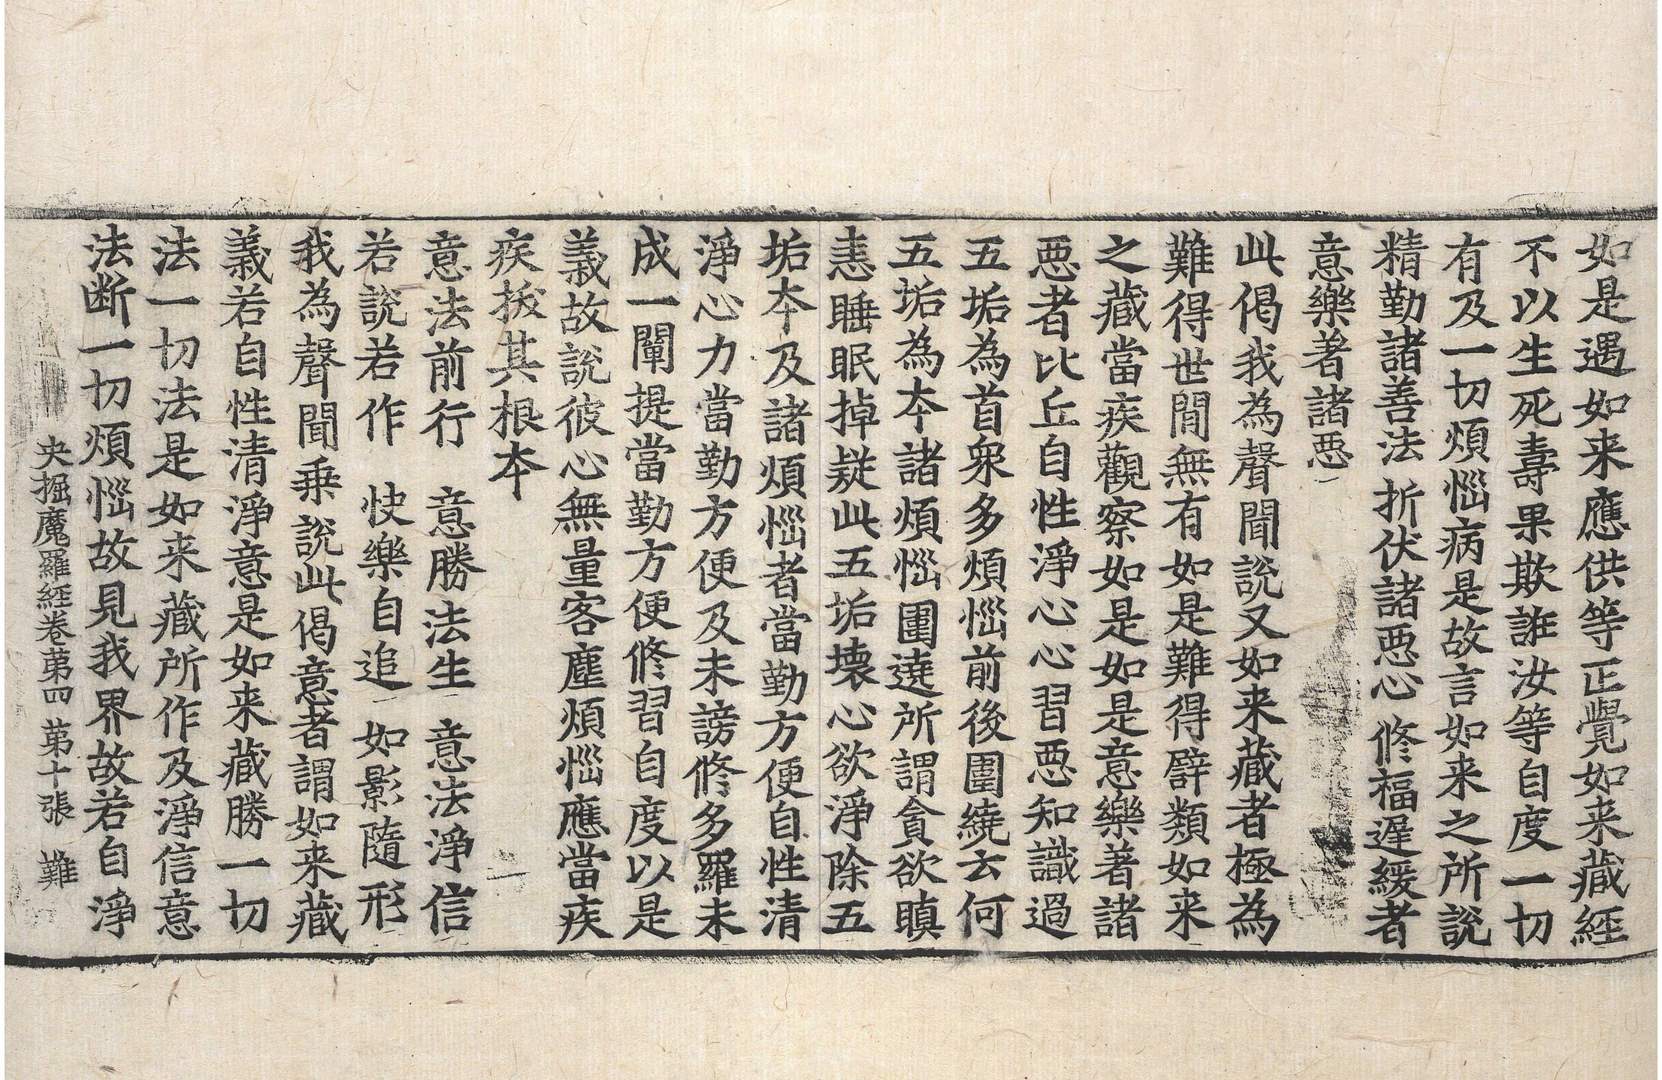 如是遇如来應供等正覺如来藏經
不以生死壽果欺誑汝等自度一切
有及一切煩惱病是故言如来之所說
精勤諸善法 折伏諸惡心 修福遲緩者
意樂著諸惡
此偈我為聲聞說又如来藏者極為
難得世間無有如是難得譬類如来
之藏當疾觀察如是如是意樂著諸
惡者比丘自性淨心心習惡知識過
五垢為首衆多煩惱前後圍繞云何
五垢為本諸煩惱圍遶所謂貪欲瞋
恚睡眠掉疑此五垢壞心欲淨除五
垢本及諸煩惱者當勤方便自性清
淨心力當勤方便及未謗修多羅未
成一闡提當勤方便修習自度以是
義故說彼心無量客塵煩惱應當疾
疾拔其根本
意法前行 意勝法生 意法淨信
若說若作 快樂自追 如影隨形
我為聲聞乗說此偈意者謂如来藏
義若自性清淨意是如来藏勝一切
法一切法是如来藏所作及淨信意
法断一切煩惱故見我界故若自淨
央掘魔羅經卷第四 第十張 難